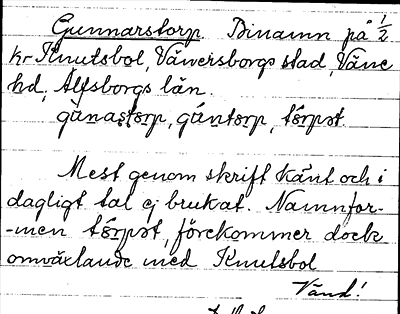 Gunnarstorp. Binamn på 1/2
kr Knutsbol, Vänersborgs stad, Väne
hd, Älfsborgs län.
gùnaṣtɷrp, gúntɷrp, tɷ́rpət.
Mest genom skrift känt och i
dagligt tal ej brukat. Namnfor-
-men tɷ́rpət, förekommer dock
omväxlande med Knutsbol
Vänd!